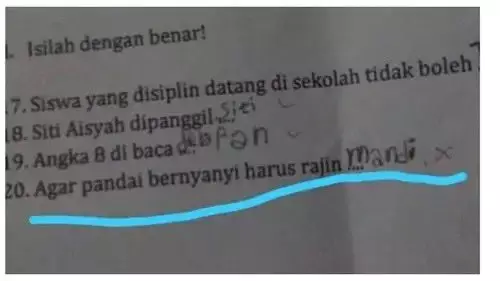 I. Isilah dengan benar!
17. Siswa yang disiplin datang di sekolah tidak boleh
18. Siti Aisyah dipanggil Siti
19. Angka 8 di baca depan
20. Agar pandai bernyanyi harus rajin .... mandi. x